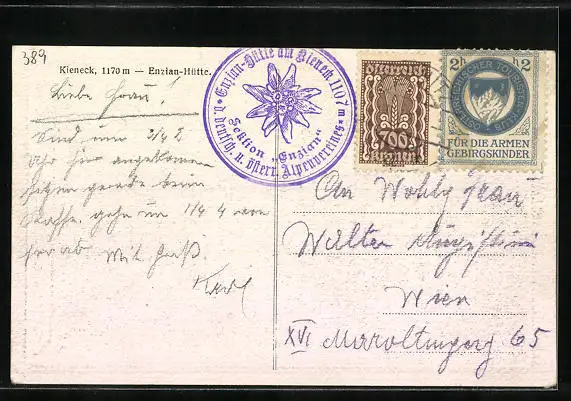 389
Kieneck, 1170 m — Enzian-Hütte.
Enzian-Hütte am Kieneck 1107 m
Sektion „Enzian"
d. deutsch. u. österr. Alpenvereines
Österreich
700
Kronen
2h h2
ÖSTERREICHISCHER TOURISTEN-KLUB
FÜR DIE ARMEN
GEBIRGSKINDER
Liebe Frau!
Sind um 1/4 2
Uhr hier angekommen
sitzen gerade beim
gehn um 1/4 4 von
hier ab Mit Gruß
Karl
An Wohlg Frau
Walter
Wien
XVI Maroltingerg 65